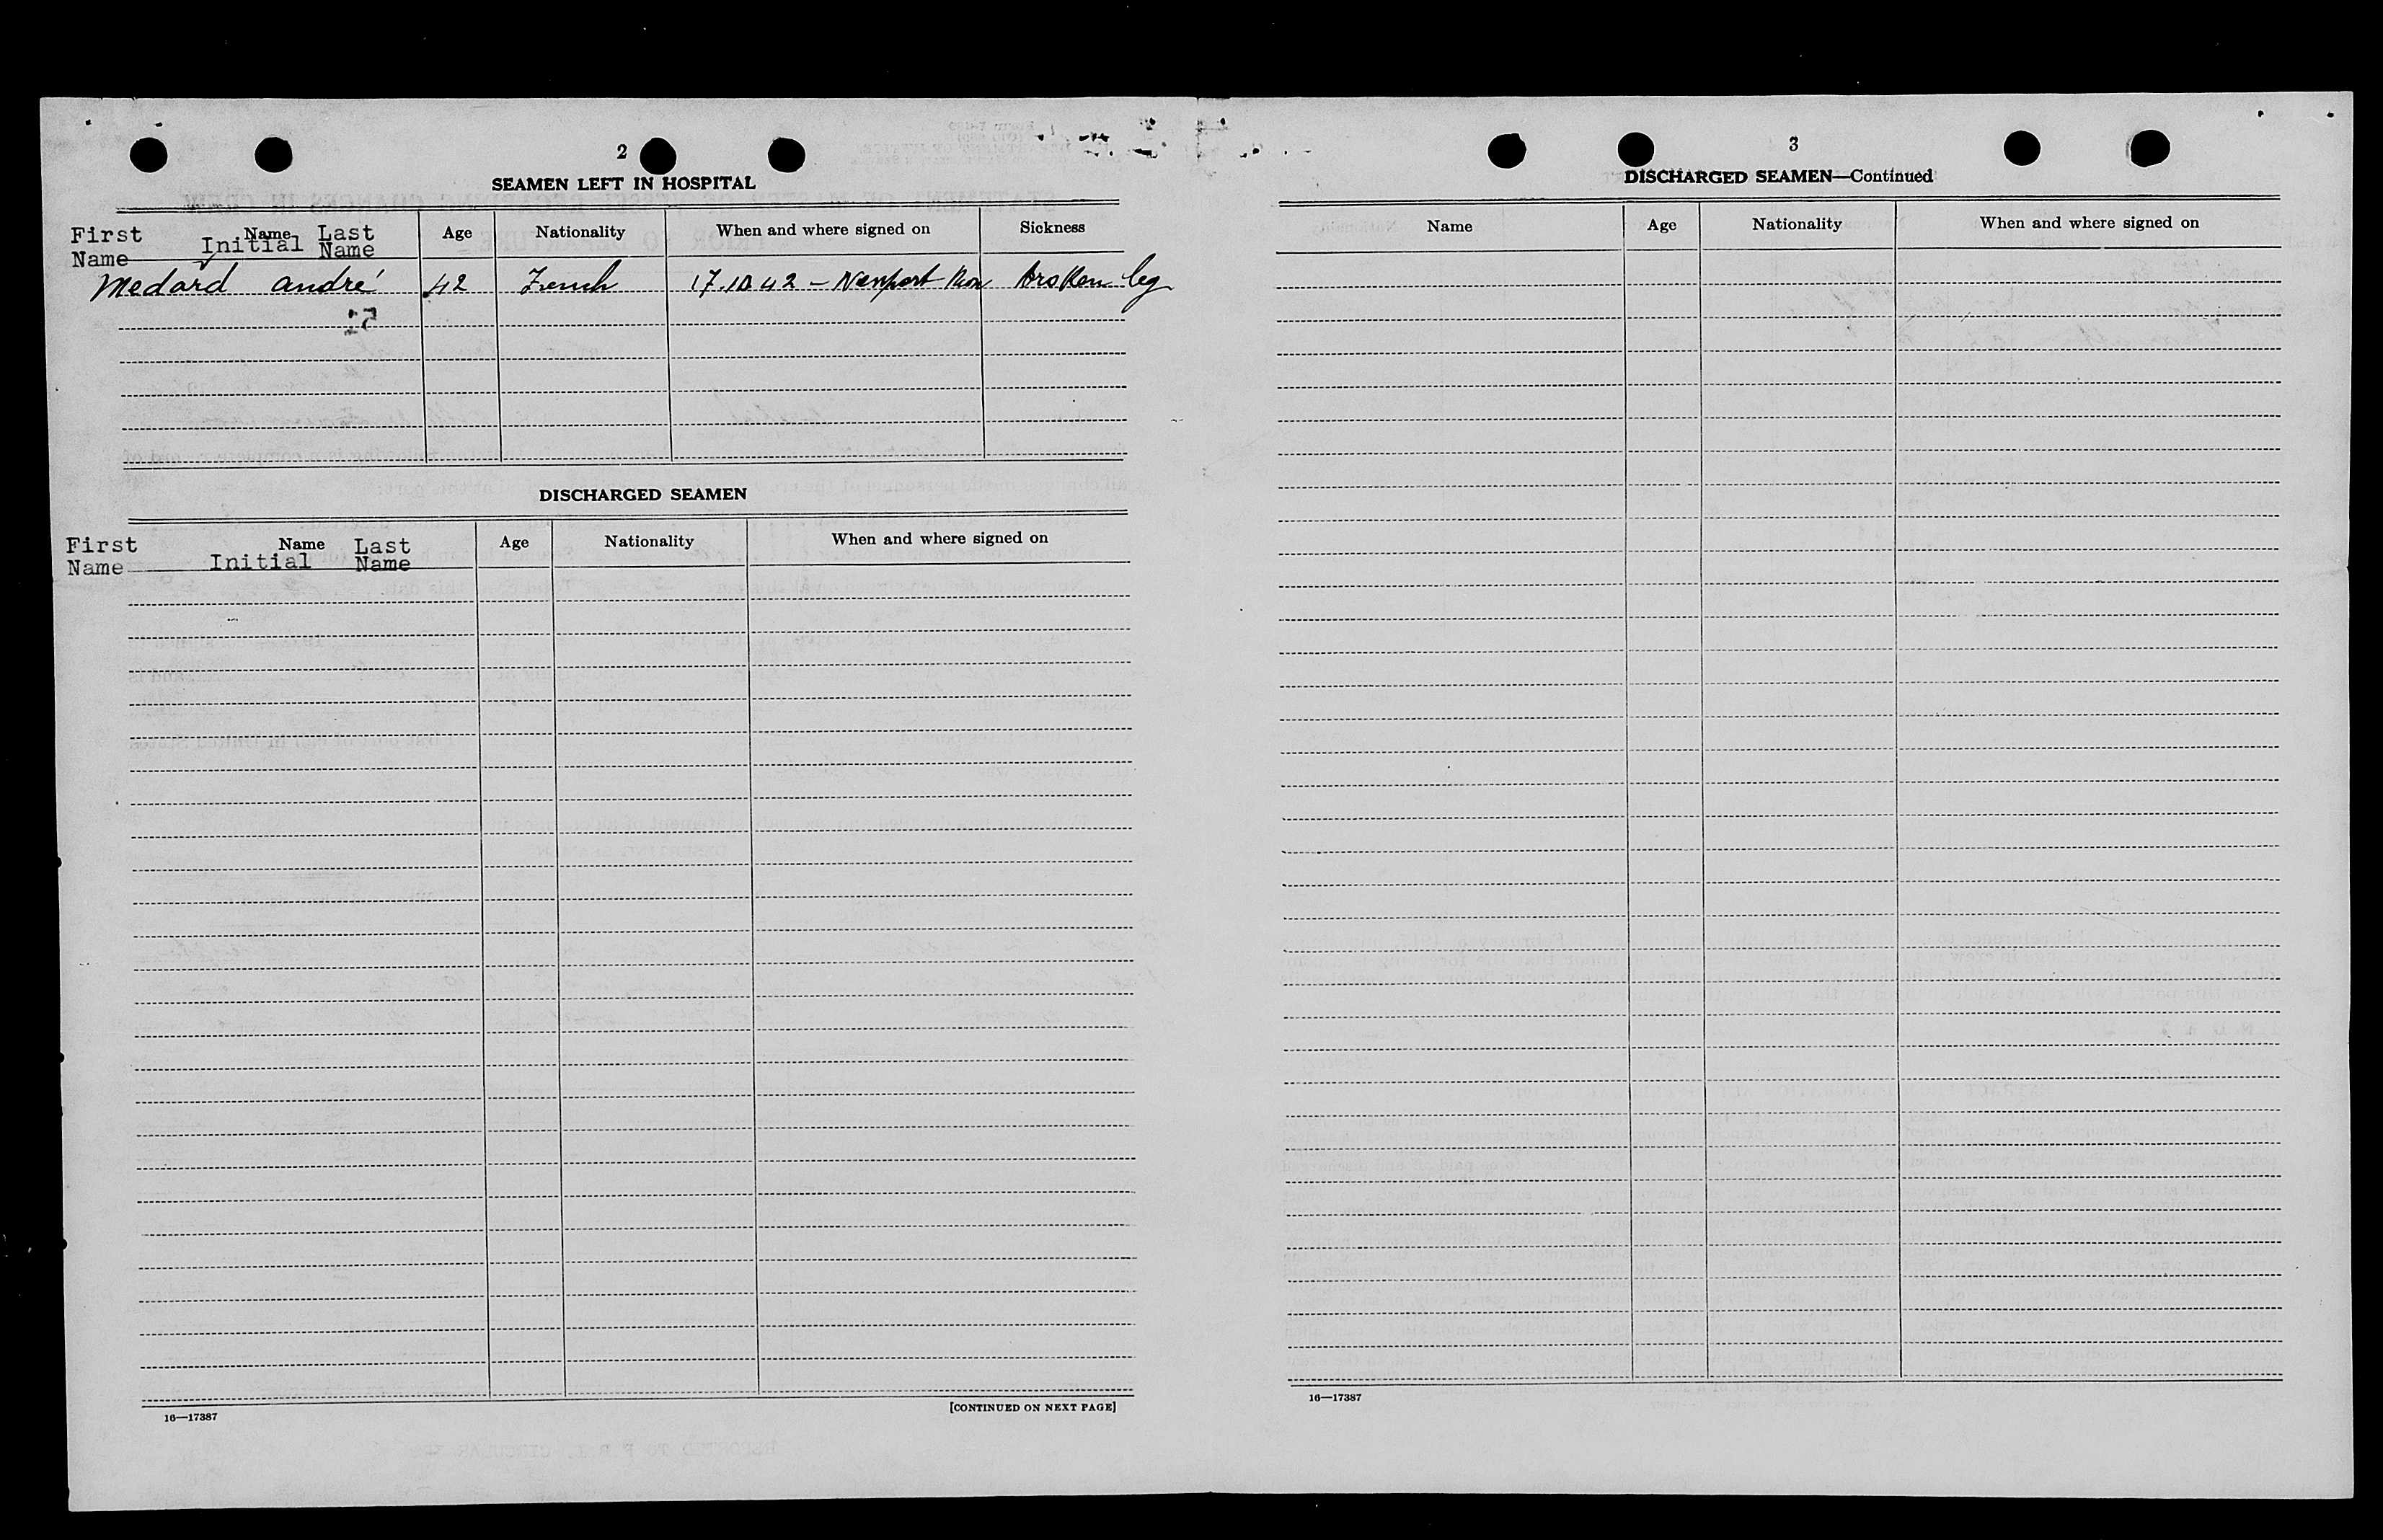 2
SEAMEN LEFT IN HOSPITAL
First Name Name Initial Last Name Age Nationality When and where signed on Sickness
Medard André 42 French 17.10.42 - Newport Mon broken leg
DISCHARGED SEAMEN
First Name Name Initial Last Name Age Nationality When and where signed on
16—17387 [CONTINUED ON NEXT PAGE]
3
DISCHARGED SEAMEN—Continued
Name Age Nationality When and where signed on
16—17387